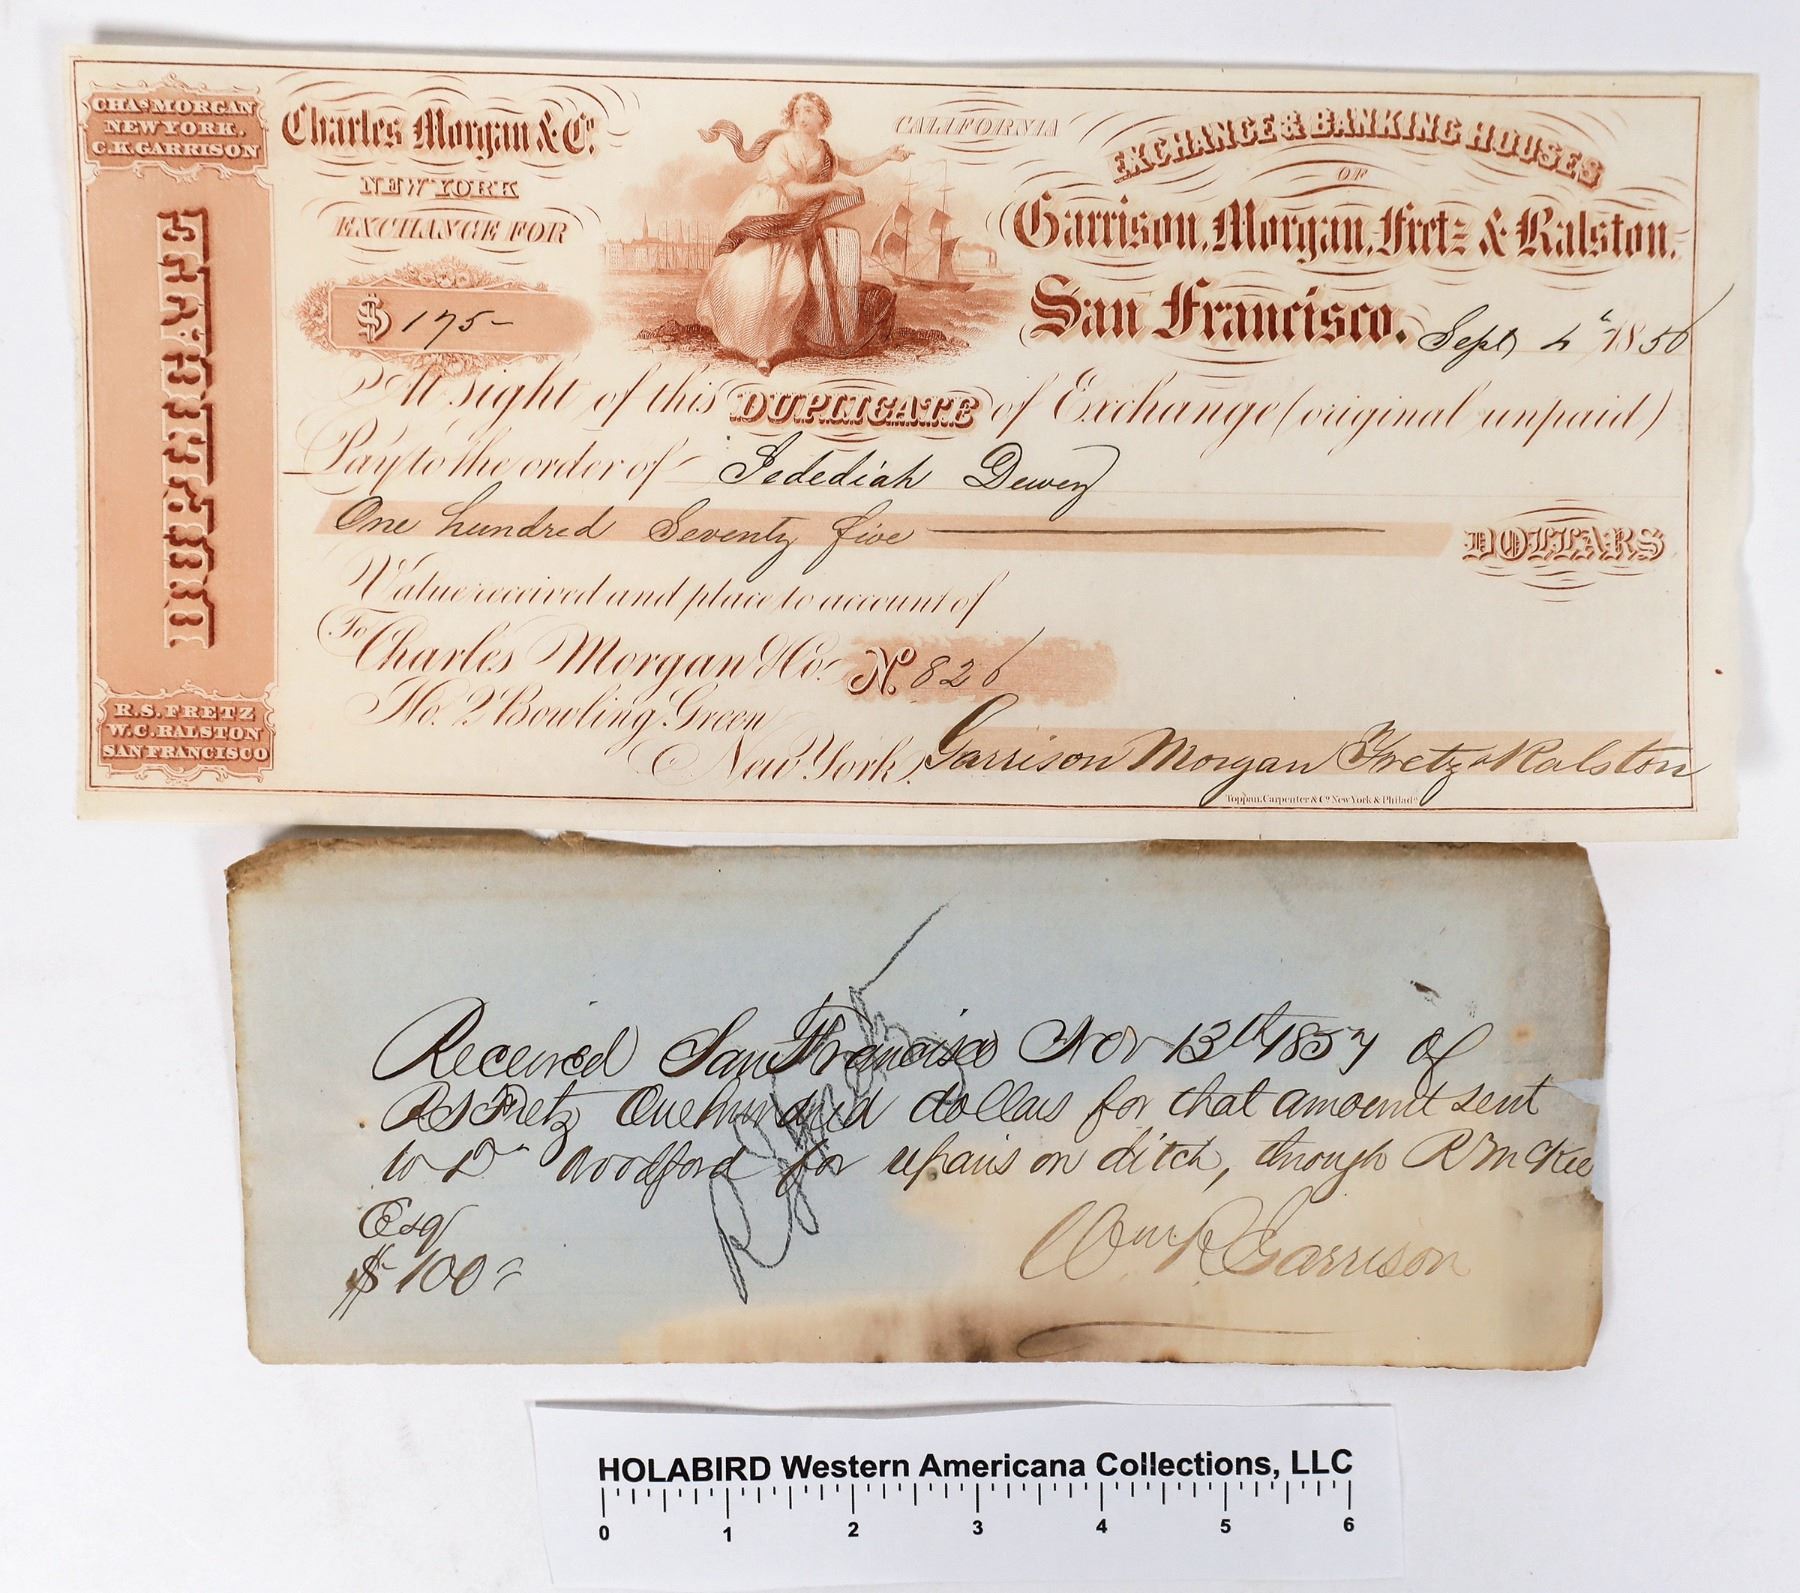 CHAS MORGAN
NEW YORK.
C.K. GARRISON
DUPLICATE
R.S. FRETZ
W.C. RALSTON
SAN FRANCISCO
Charles Morgan & Co.
NEW YORK
EXCHANGE FOR
$ 175-
CALIFORNIA
EXCHANGE & BANKING HOUSES
OF
Garrison, Morgan, Fretz & Ralston.
San Francisco. Sept 4th 1856
At sight of this DUPLICATE of Exchange (original unpaid)
Pay to the order of Jedediah Dewey
One hundred Seventy five DOLLARS
Value received and place to account of
To Charles Morgan & Co. No. 826
No. 2 Bowling Green
New York, Garrison Morgan Fretz & Ralston
Toppan, Carpenter & Co. New York & Philada.
Received San Francisco Nov 13th 1857 of
RS Fretz One hundred dollars for that amount sent
to Dr Woodford for repairs on ditch, through R McKee
Esq
$100
Wm R Garrison
HOLABIRD Western Americana Collections, LLC
0 1 2 3 4 5 6